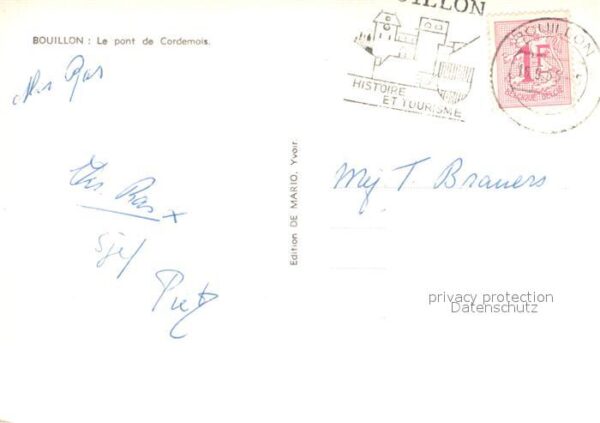 BOUILLON
BOUILLON : Le pont de Cordemois.
HISTOIRE
ET TOURISME
BOUILLON
1F
BELGIQUE-BELGIË
Ras
Ras
Sjef
Piet
Edition DE MARIO, Yvoir.
Mej T. Brauers
privacy protection
Datenschutz